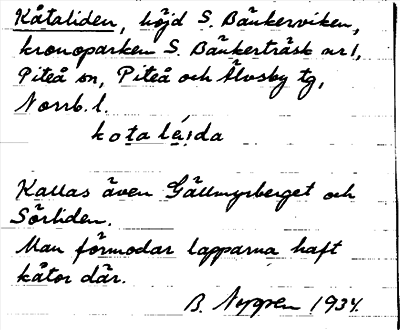 Kåtaliden, höjd S. Bänkerviken,
kronoparken S. Bänkerträsk nr 1,
Piteå sn, Piteå och Älvsby tg,
Norrb. l.
kotalıda
Kallas även Gällmyrberget och
Sörliden.
Man förmodar lapparna haft
kåtor där.
B. Nygren 1934.